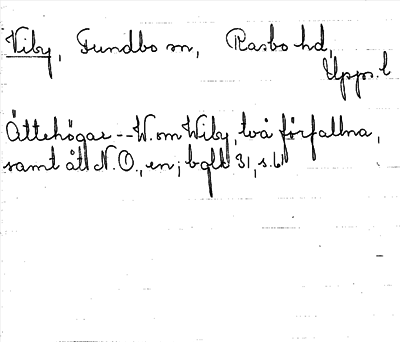 Viby, Funbo sn, Rasbo hd,
Upps. l
Ättehögar -- W. om Wiby, två förfallna,
samt åt N.O., en; bqll 31, s. 61